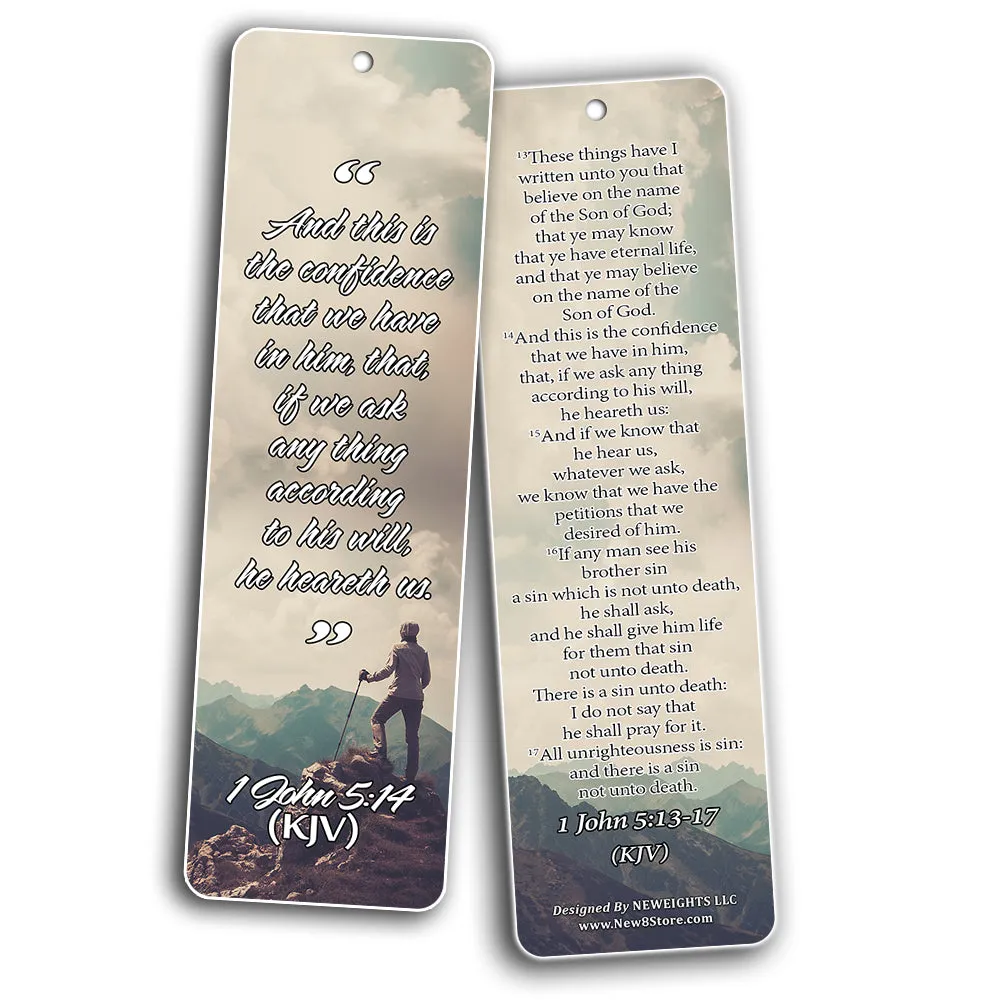 “
And this is
the confidence
that we have
in him, that,
if we ask
any thing
according
to his will,
he heareth us.
”
1 John 5:14
(KJV)
¹³These things have I
written unto you that
believe on the name
of the Son of God;
that ye may know
that ye have eternal life,
and that ye may believe
on the name of the
Son of God.
¹⁴And this is the confidence
that we have in him,
that, if we ask any thing
according to his will,
he heareth us:
¹⁵And if we know that
he hear us,
whatever we ask,
we know that we have the
petitions that we
desired of him.
¹⁶If any man see his
brother sin
a sin which is not unto death,
he shall ask,
and he shall give him life
for them that sin
not unto death.
There is a sin unto death:
I do not say that
he shall pray for it.
¹⁷All unrighteousness is sin:
and there is a sin
not unto death.
1 John 5:13-17
(KJV)
Designed By NEWEIGHTS LLC
www.New8Store.com